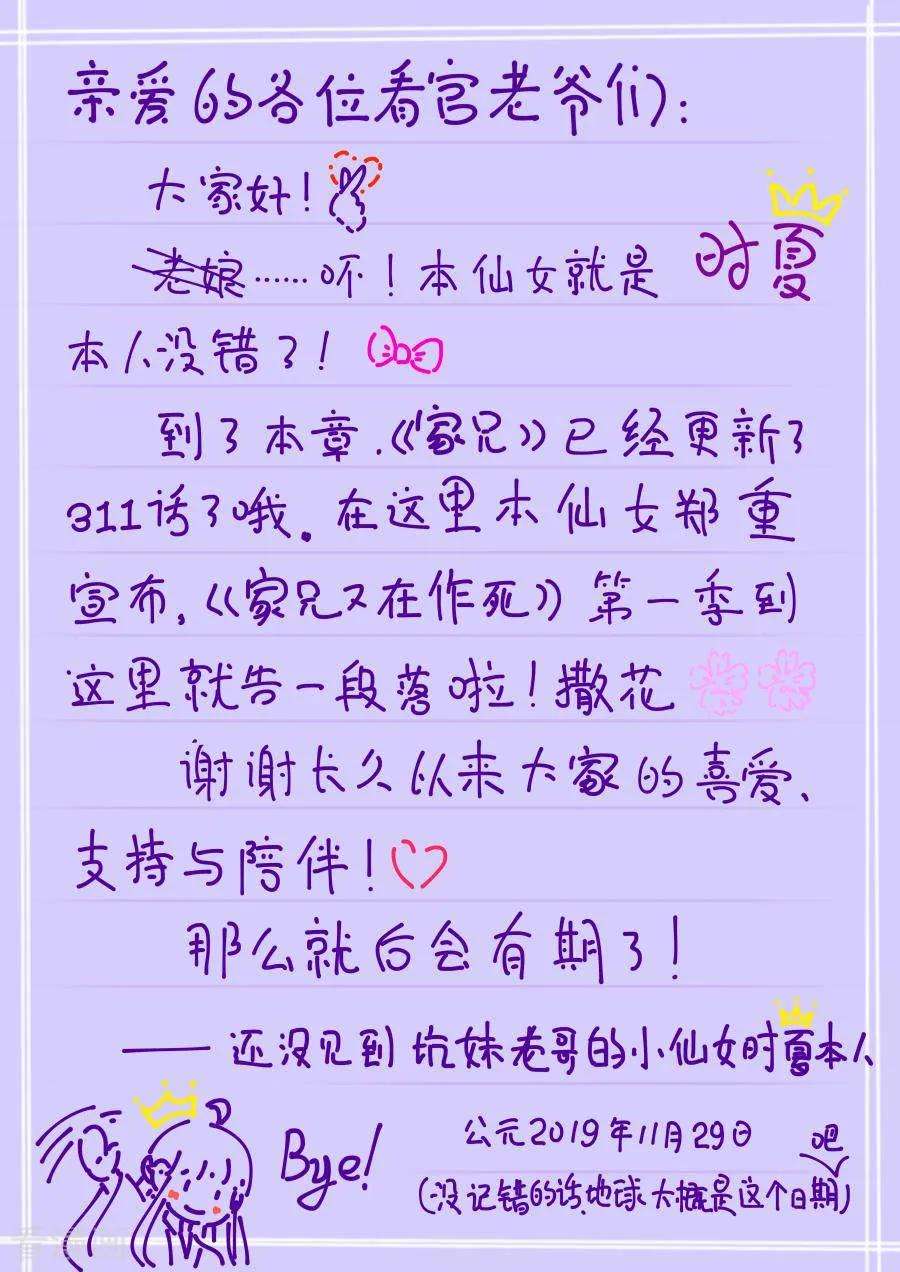 亲爱的各位看官老爷们:
大家好!
老娘……呸!本仙女就是 时夏
本人没错了!
到了本章,《家兄》已经更新了
311话了哦。在这里本仙女郑重
宣布,《家兄又在作死》第一季到
这里就告一段落啦!撒花
谢谢长久以来大家的喜爱、
支持与陪伴!
那么就后会有期了!
——还没见到坑妹老哥的小仙女时夏本人
Bye!
公元2019年11月29日
吧
(没记错的话,地球大概是这个日期)